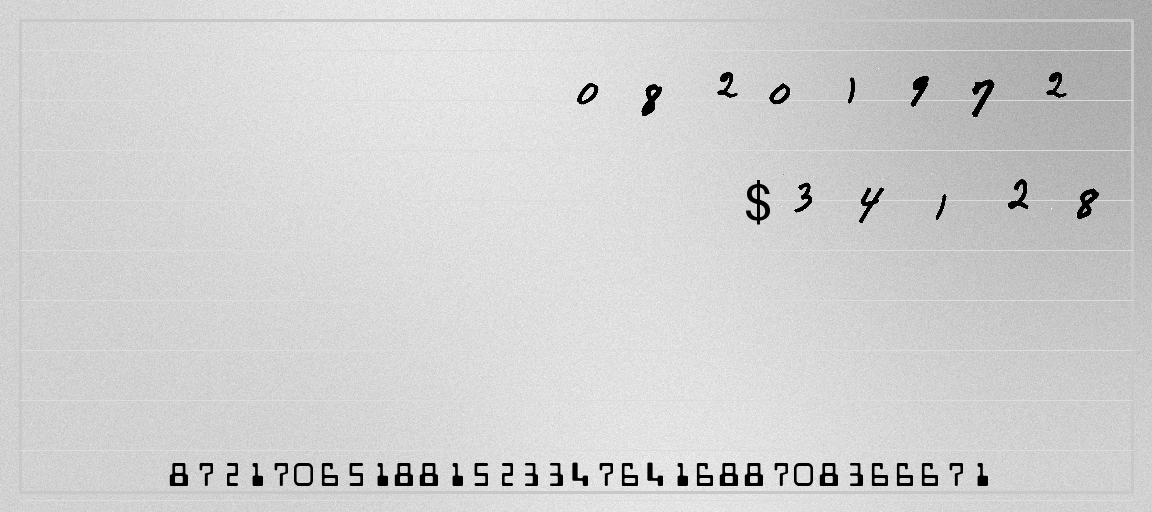 08201972
$34128
872170651881523347641688708366671